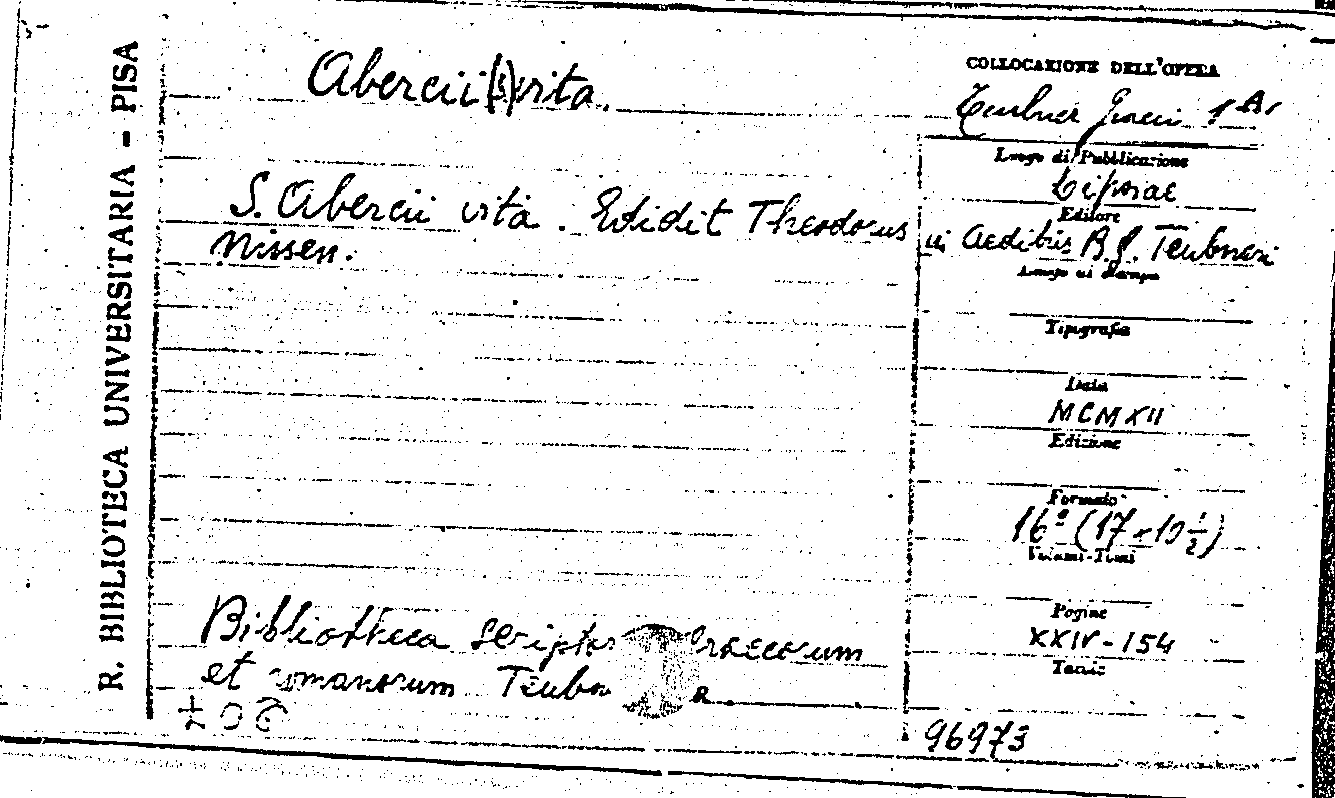 R. BIBLIOTECA UNIVERSITARIA - PISA
Abercii (S) vita.
S. Abercii vita. Edidit Theodorus
Nissen.
Bibliotheca Scriptor Graecorum
et romanorum Teubn R.
COLLOCAZIONE DELL'OPERA
Teubner Graeci
Luogo di Pubblicazione
Lipsiae
Editore
in Aedibus B. G. Teubneri
Luogo di stampa
Tipografia
Data
MCMXII
Edizione
Formato
16º (17 x 10 1/2)
Volumi-Tomi
Pagine
XXIV - 154
96973